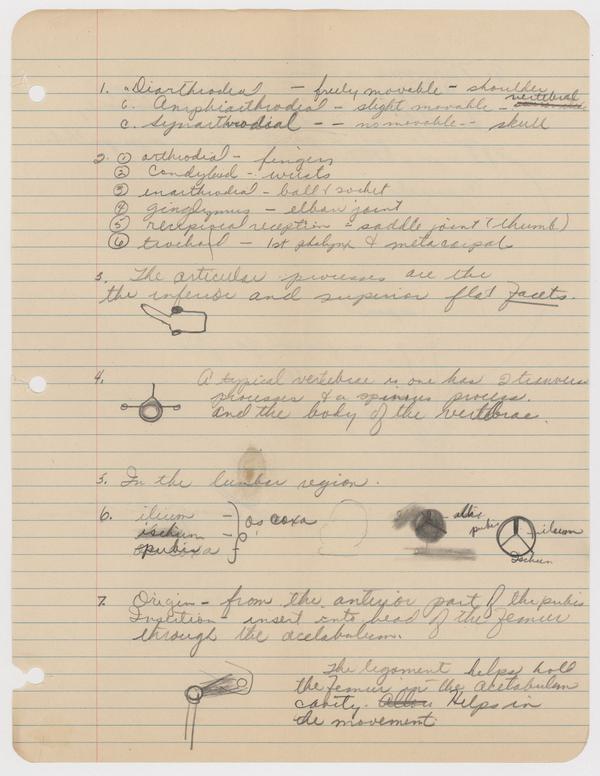 1. a. Diarthrodial - freely movable - shoulder
b. Amphiarthrodial - slight movable - vertebral
c. synarthrodial - - no movable - - skull
2. ① arthrodial - fingers
② Condyloid - wrists
③ enarthrodial - ball & socket
④ ginglymus - elbow joint
⑤ reception - saddle joint (thumb)
⑥ - 1st phalynx & metacarpal
3. The articular processes are the
the inferior and superior flat facets.
4. A typical vertebrae is one has 2 tranvers
processes & a spinous process.
and the body of the vertebrae.
5. In the lumbar region.
6. ilium -
ischium - } os coxa
pubis
pubis
ilium
Ischium
7. Origin - from the anterior part of the pubis
Insertion - insert into head of the femur
through the acetabulum.
The ligament helps hold
the femur in the acetabulum
cavity. Helps in
the movement.